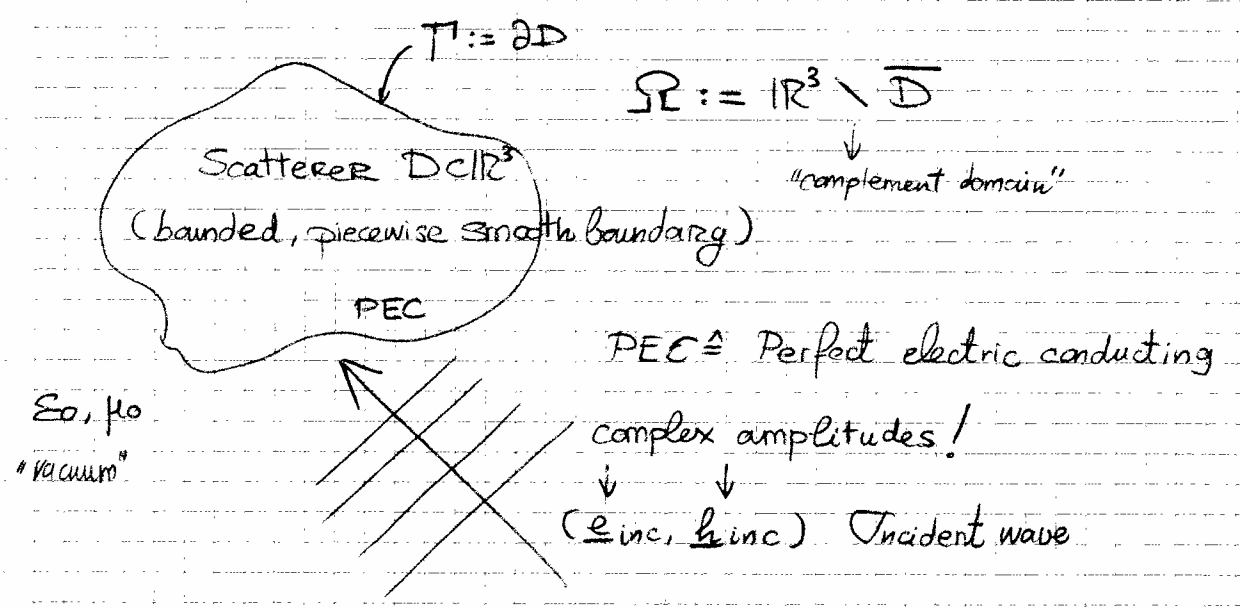 Γ := ∂D
Ω := ℝ³ \ D̅
"complement domain"
Scatterer D⊂ℝ³
(bounded, piecewise smooth boundary)
PEC
PEC ≙ Perfect electric conducting
ε₀, μ₀
"vacuum"
complex amplitudes!
(e̲inc, h̲inc) Incident wave